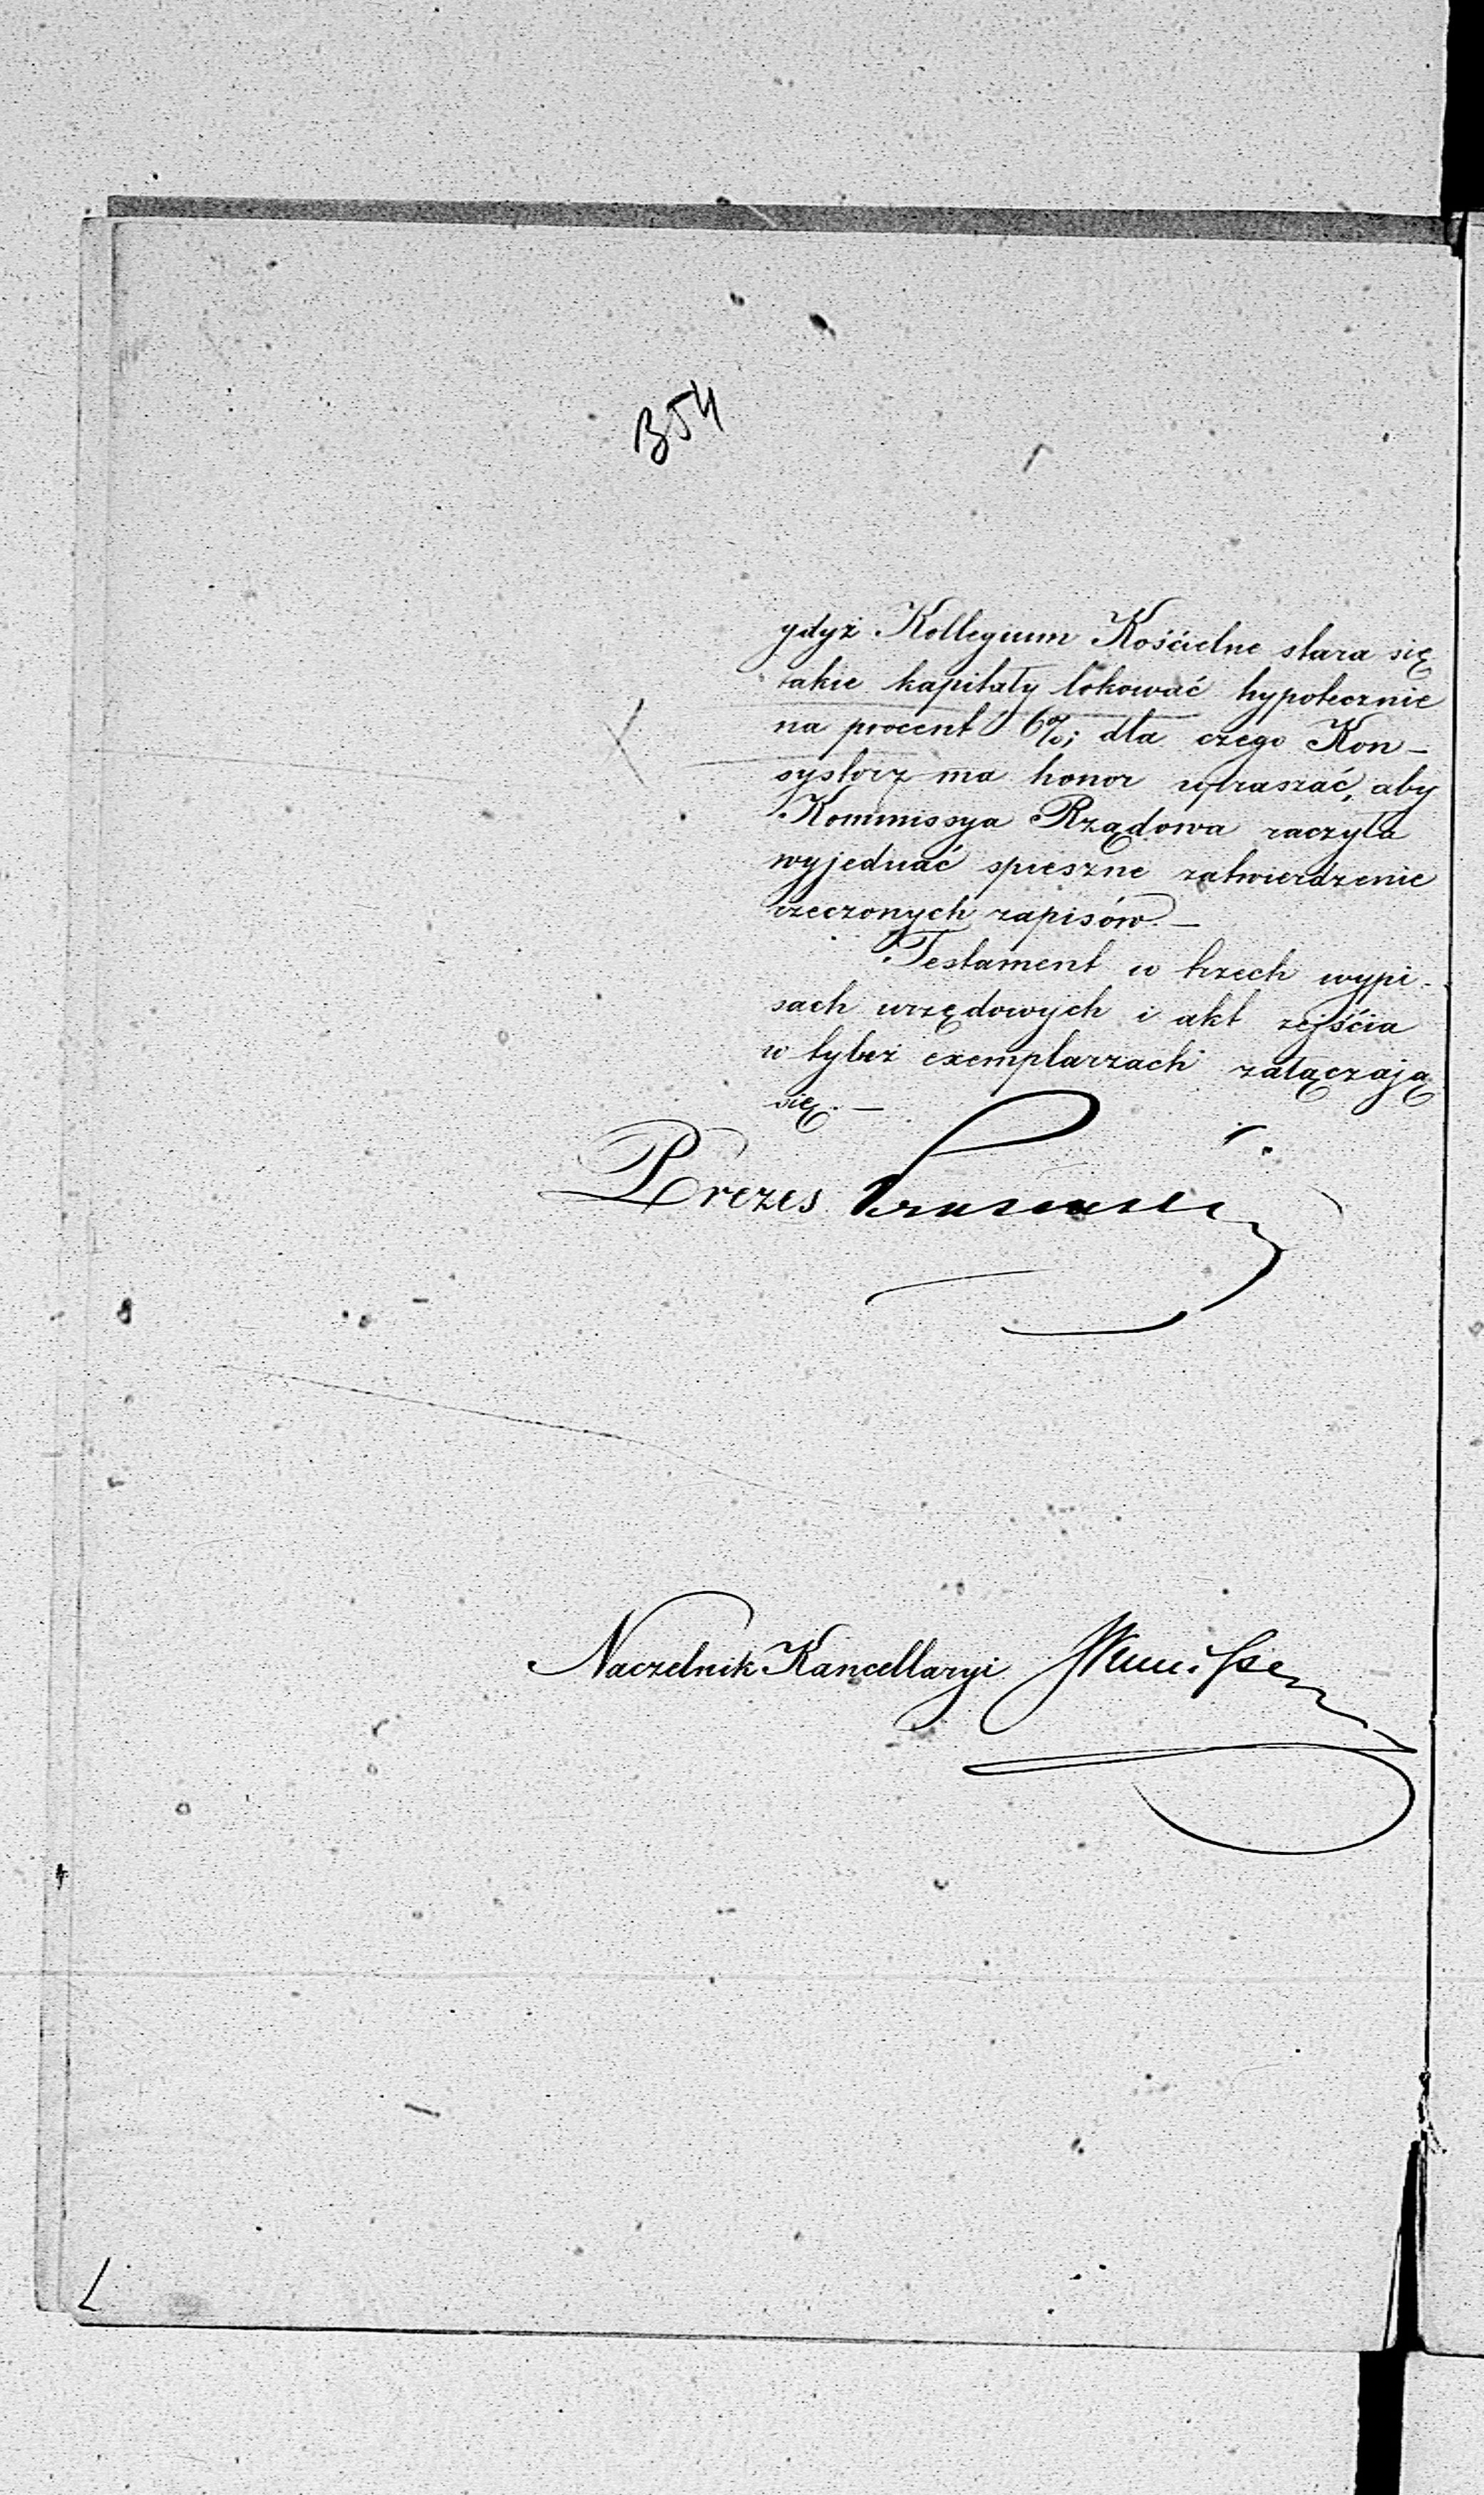 354
gdyż Kollegium Kościelne stara się
takie kapitały lokować hypotecznie
na procent 6%; dla czego Kon-
systorz ma honor upraszać, aby
Kommissya Rządowa raczyła
wyjednać spieszne zatwierdzenie
rzeczonych zapisów. —
Testament w trzech wypi-
sach urzędowych i akt zejścia
w tyluż exemplarzach załączają
się. —
Prezes
Naczelnik Kancellaryi